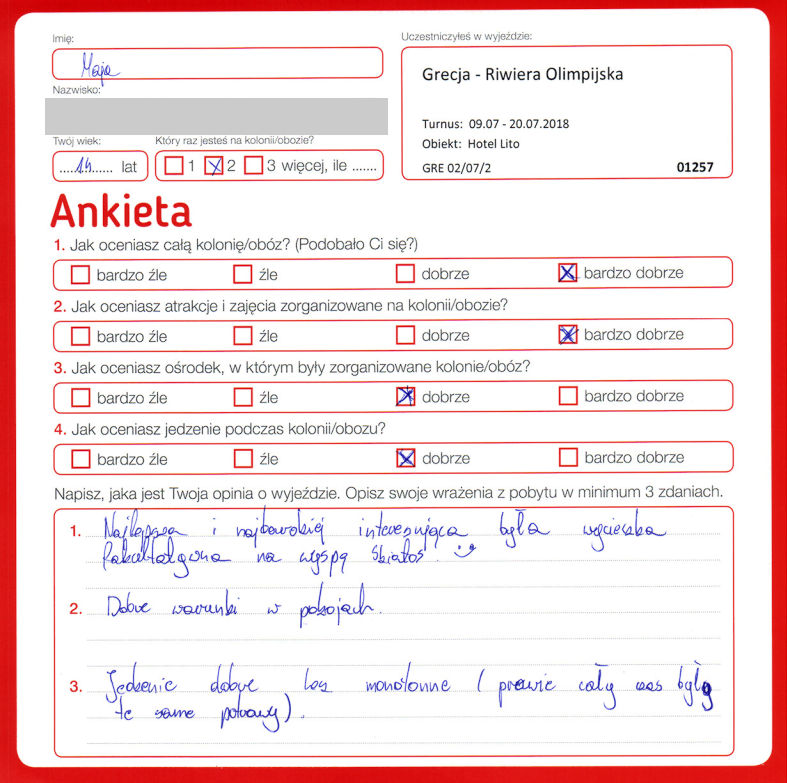 Imię:
Maja
Nazwisko:
Twój wiek:
14 lat
Który raz jesteś na kolonii/obozie?
1 2 3 więcej, ile .......
Uczestniczyłeś w wyjeździe:
Grecja - Riwiera Olimpijska
Turnus: 09.07 - 20.07.2018
Obiekt: Hotel Lito
GRE 02/07/2 01257
Ankieta
1. Jak oceniasz całą kolonię/obóz? (Podobało Ci się?)
bardzo źle źle dobrze bardzo dobrze
2. Jak oceniasz atrakcje i zajęcia zorganizowane na kolonii/obozie?
bardzo źle źle dobrze bardzo dobrze
3. Jak oceniasz ośrodek, w którym były zorganizowane kolonie/obóz?
bardzo źle źle dobrze bardzo dobrze
4. Jak oceniasz jedzenie podczas kolonii/obozu?
bardzo źle źle dobrze bardzo dobrze
Napisz, jaka jest Twoja opinia o wyjeździe. Opisz swoje wrażenia z pobytu w minimum 3 zdaniach.
1. Najlepsza i najbardziej interesująca była wycieczka
fakultatywna na wyspę Skiatos.
2. Dobre warunki w pokojach.
3. Jedzenie dobre lecz monotonne (prawie cały czas były
te same potrawy).